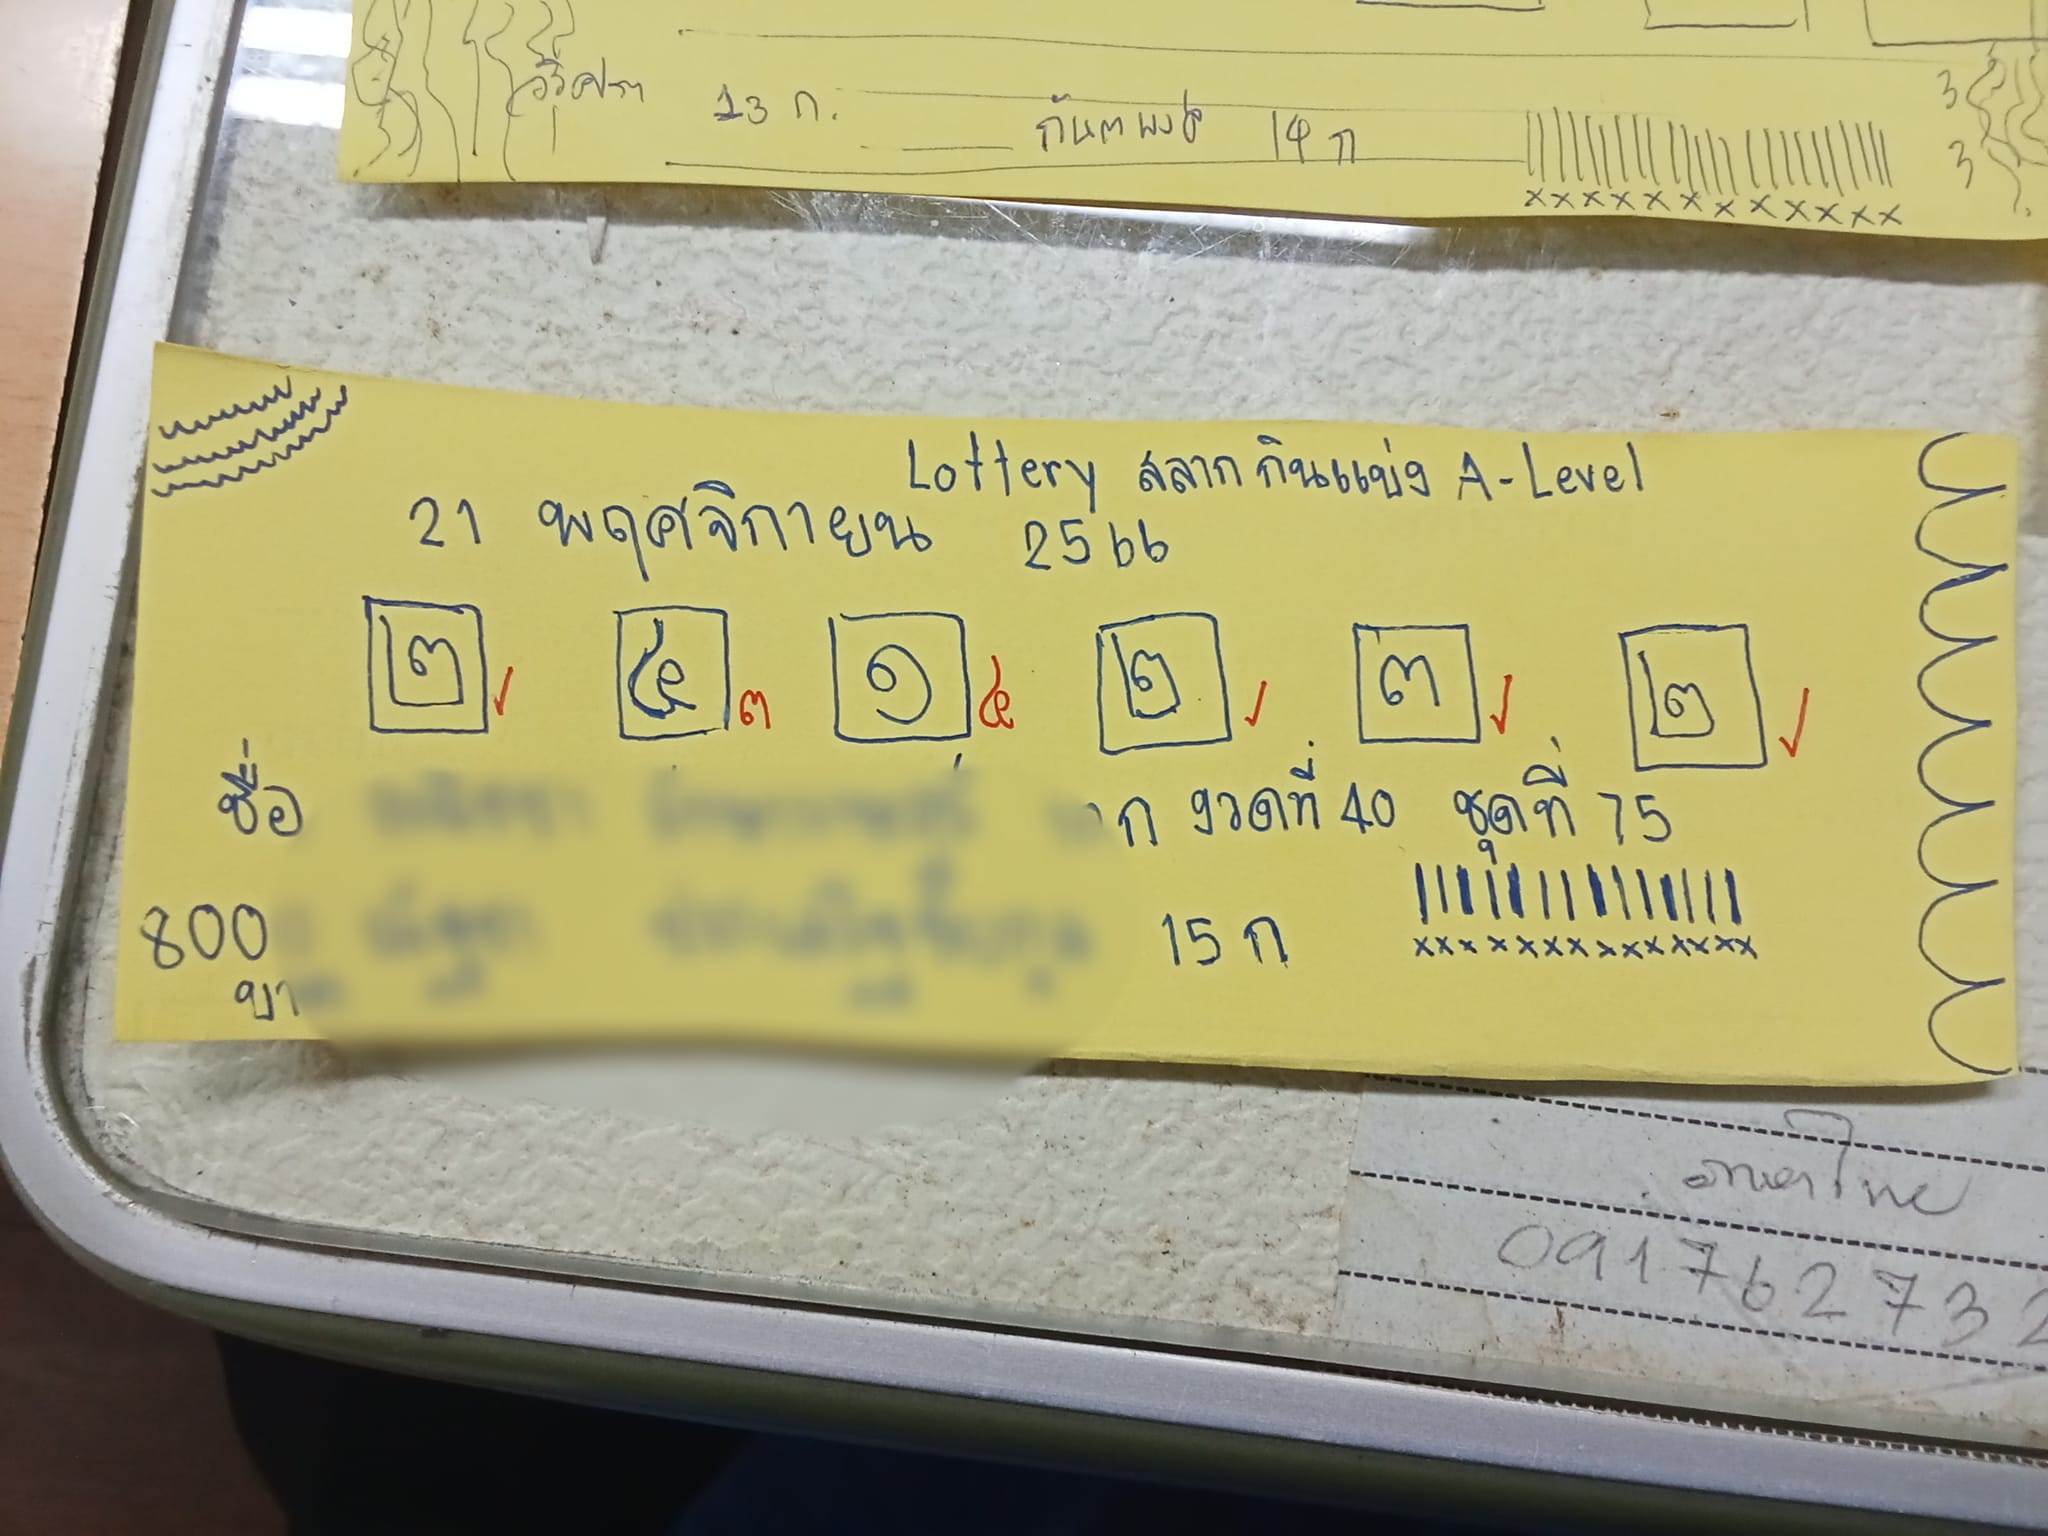 13 ก.
กันตพงศ์ 14 ก
3
3
xxxxxxxxxxxx
Lottery สลากกินแบ่ง A-Level
21 พฤศจิกายน 2566
๒ ๕ ๓ ๑ ๕ ๒ ๓ ๒
ชื่อ
ก งวดที่ 40 ชุดที่ 75
800 15 ก
xxxxxxxxxxxxxx
บา
091762732